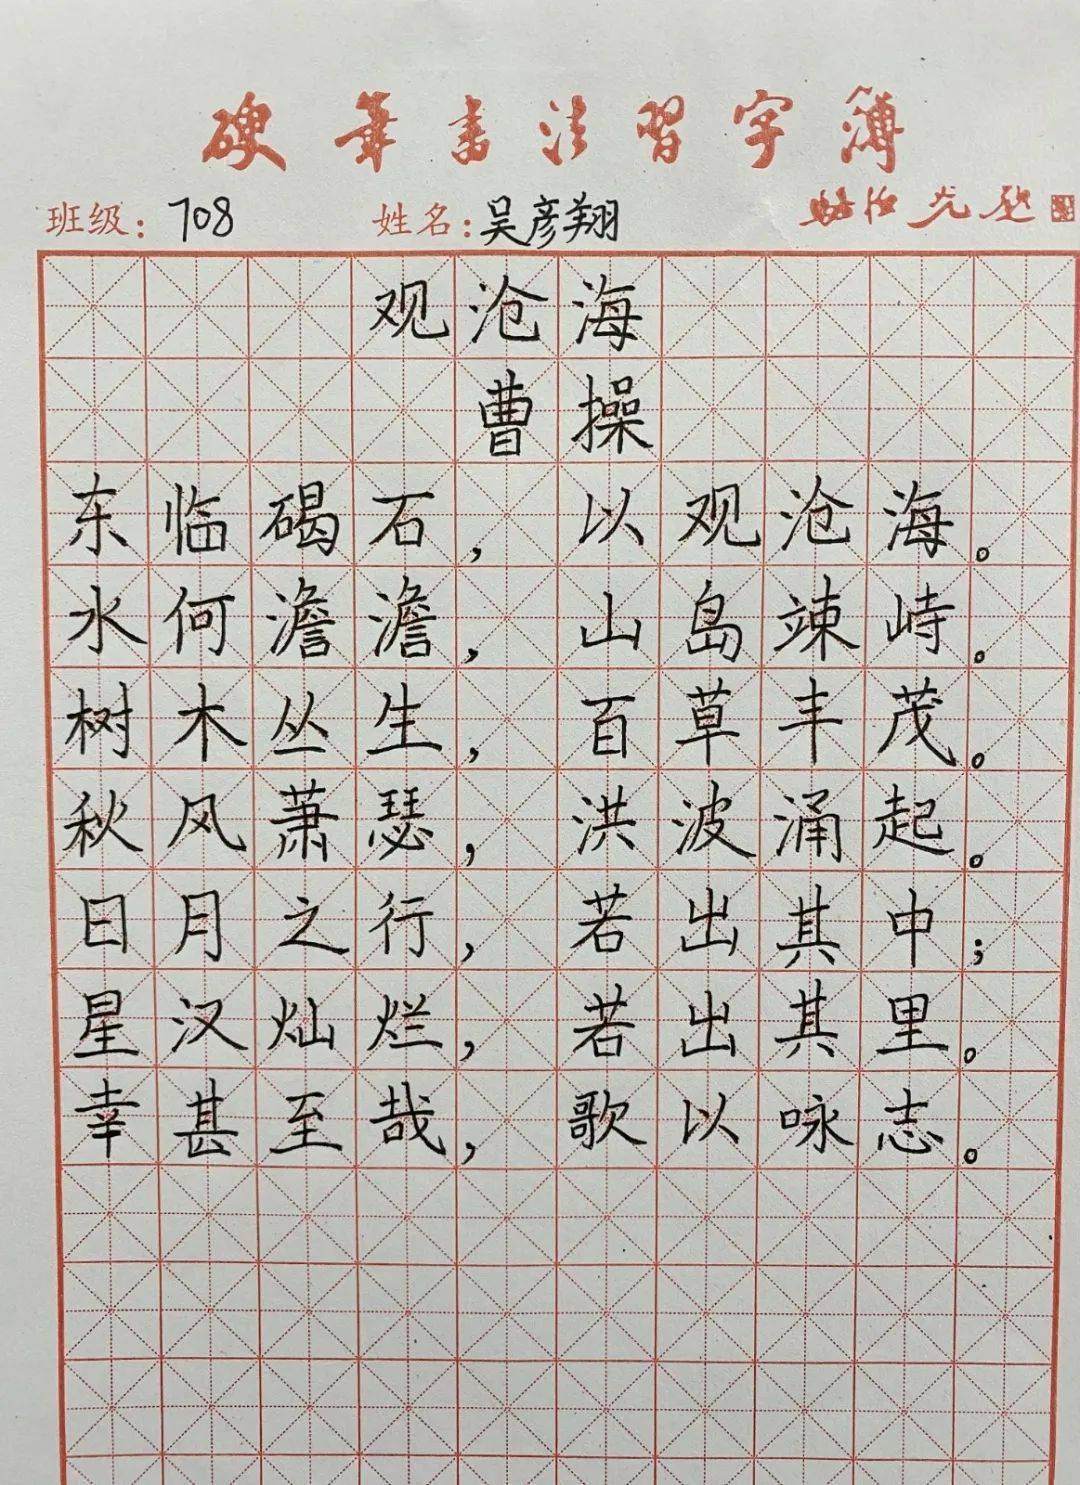 硬笔书法习字簿
班级：708 姓名：吴彦翔
观沧海
曹操
东临碣石，以观沧海。
水何澹澹，山岛竦峙。
树木丛生，百草丰茂。
秋风萧瑟，洪波涌起。
日月之行，若出其中；
星汉灿烂，若出其里。
幸甚至哉，歌以咏志。